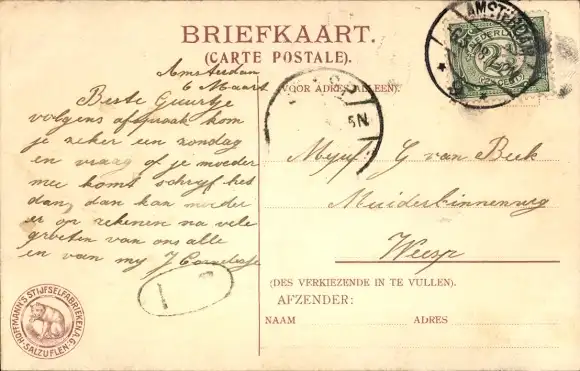 BRIEFKAART.
(CARTE POSTALE).
Amsterdam
6 Maart
Beste Guurtje
volgens afspraak kom
je zeker een zondag
en vraag of je moeder
mee komt schryf het
dan, dan kan moeder
er op rekenen na vele
groeten van ons alle
en van my J
VOOR ADRES ALLEEN).
AMSTERDAM
NEDERLAND
2½
5N
Mejuf: G van Beek
Muiderbinnenweg
Weesp
(DES VERKIEZENDE IN TE VULLEN).
AFZENDER:
NAAM ADRES
HOFFMANN'S STIJFSELFABRIEKEN A.G.
SALZUFLEN
1